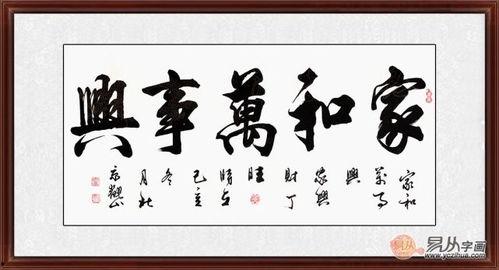 家和萬事興
家和
萬事
興
家興
財丁
旺
時在
己亥
冬
月北
京
易从字画
www.yczihua.com